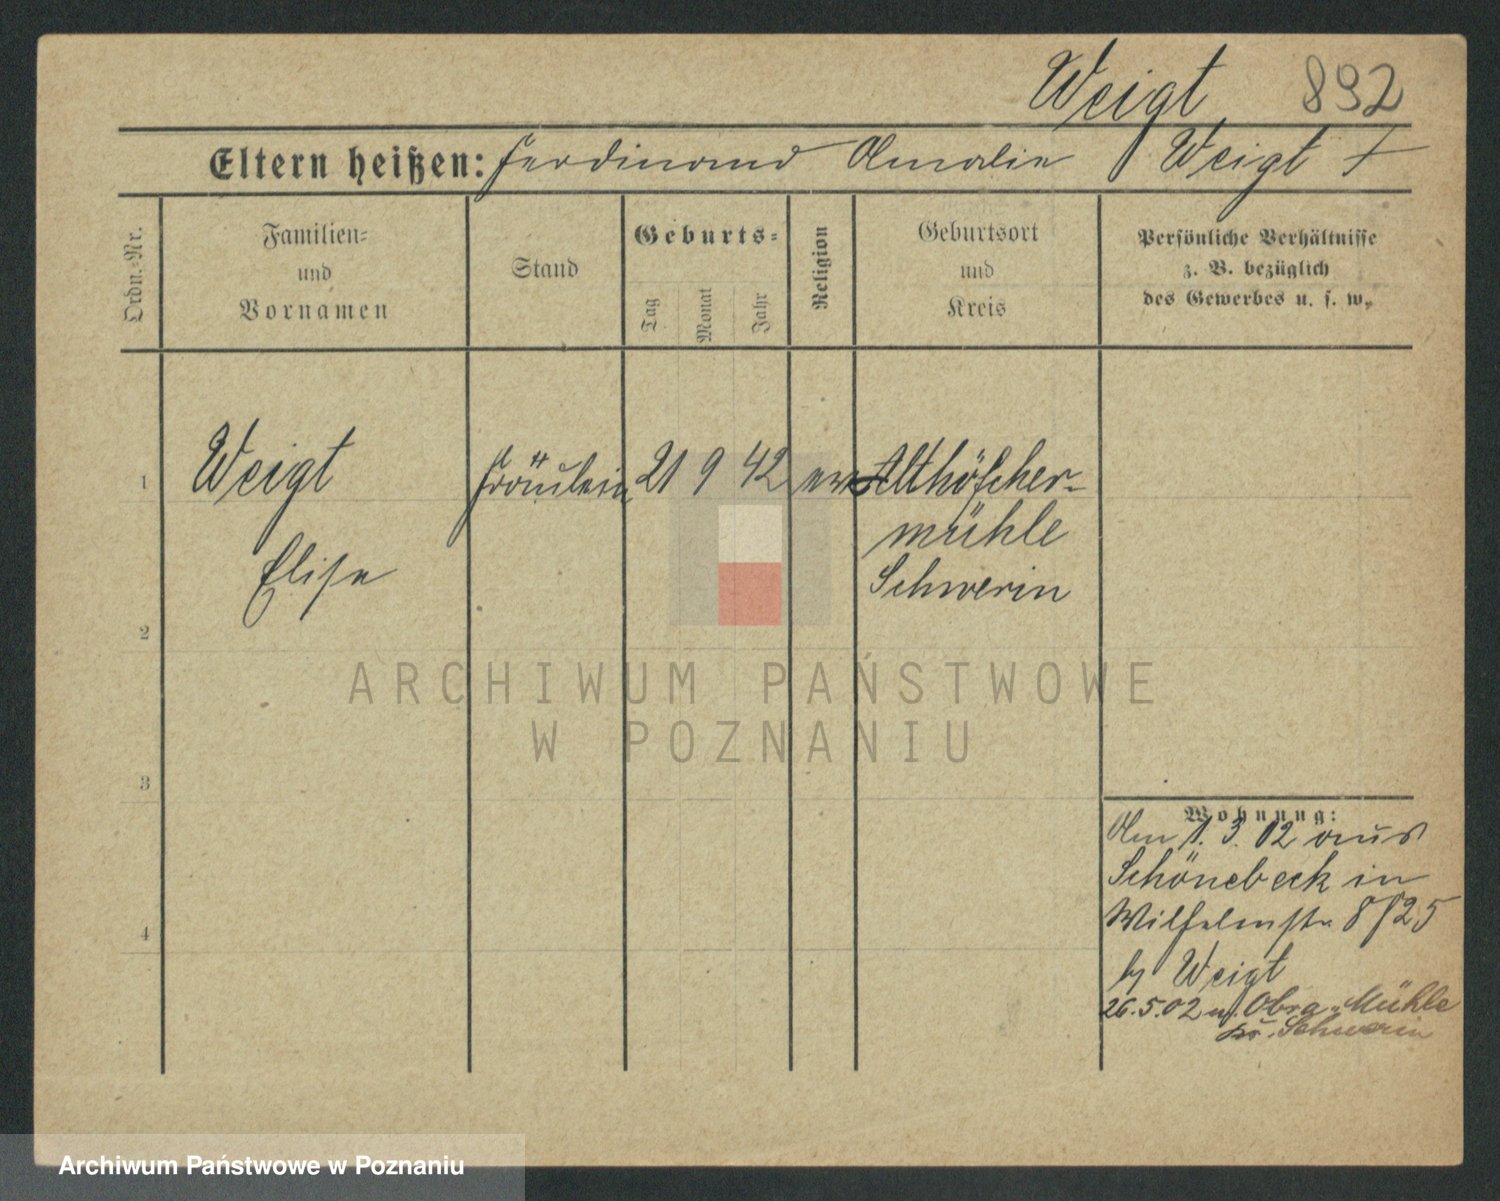 Weigt 892
Eltern heißen: Ferdinand Amalie Weigt +
Ordn.-Nr.
Familien-
und
Vornamen
Stand
Geburts-
Tag
Monat
Jahr
Religion
Geburtsort
und
Kreis
Persönliche Verhältnisse
z. B. bezüglich
des Gewerbes u. s. w.
1 Weigt Fräulein 21 9 42 ev Althöfcher-
mühle
Elise Schwerin
2
3
4
Wohnung:
Am 1.3.02 aus
Schönebeck in
Wilhelmstr. 8/25
by Weigt
26.5.02 n. Obra-Mühle
Kr. Schwerin
ARCHIWUM PAŃSTWOWE
W POZNANIU
Archiwum Państwowe w Poznaniu